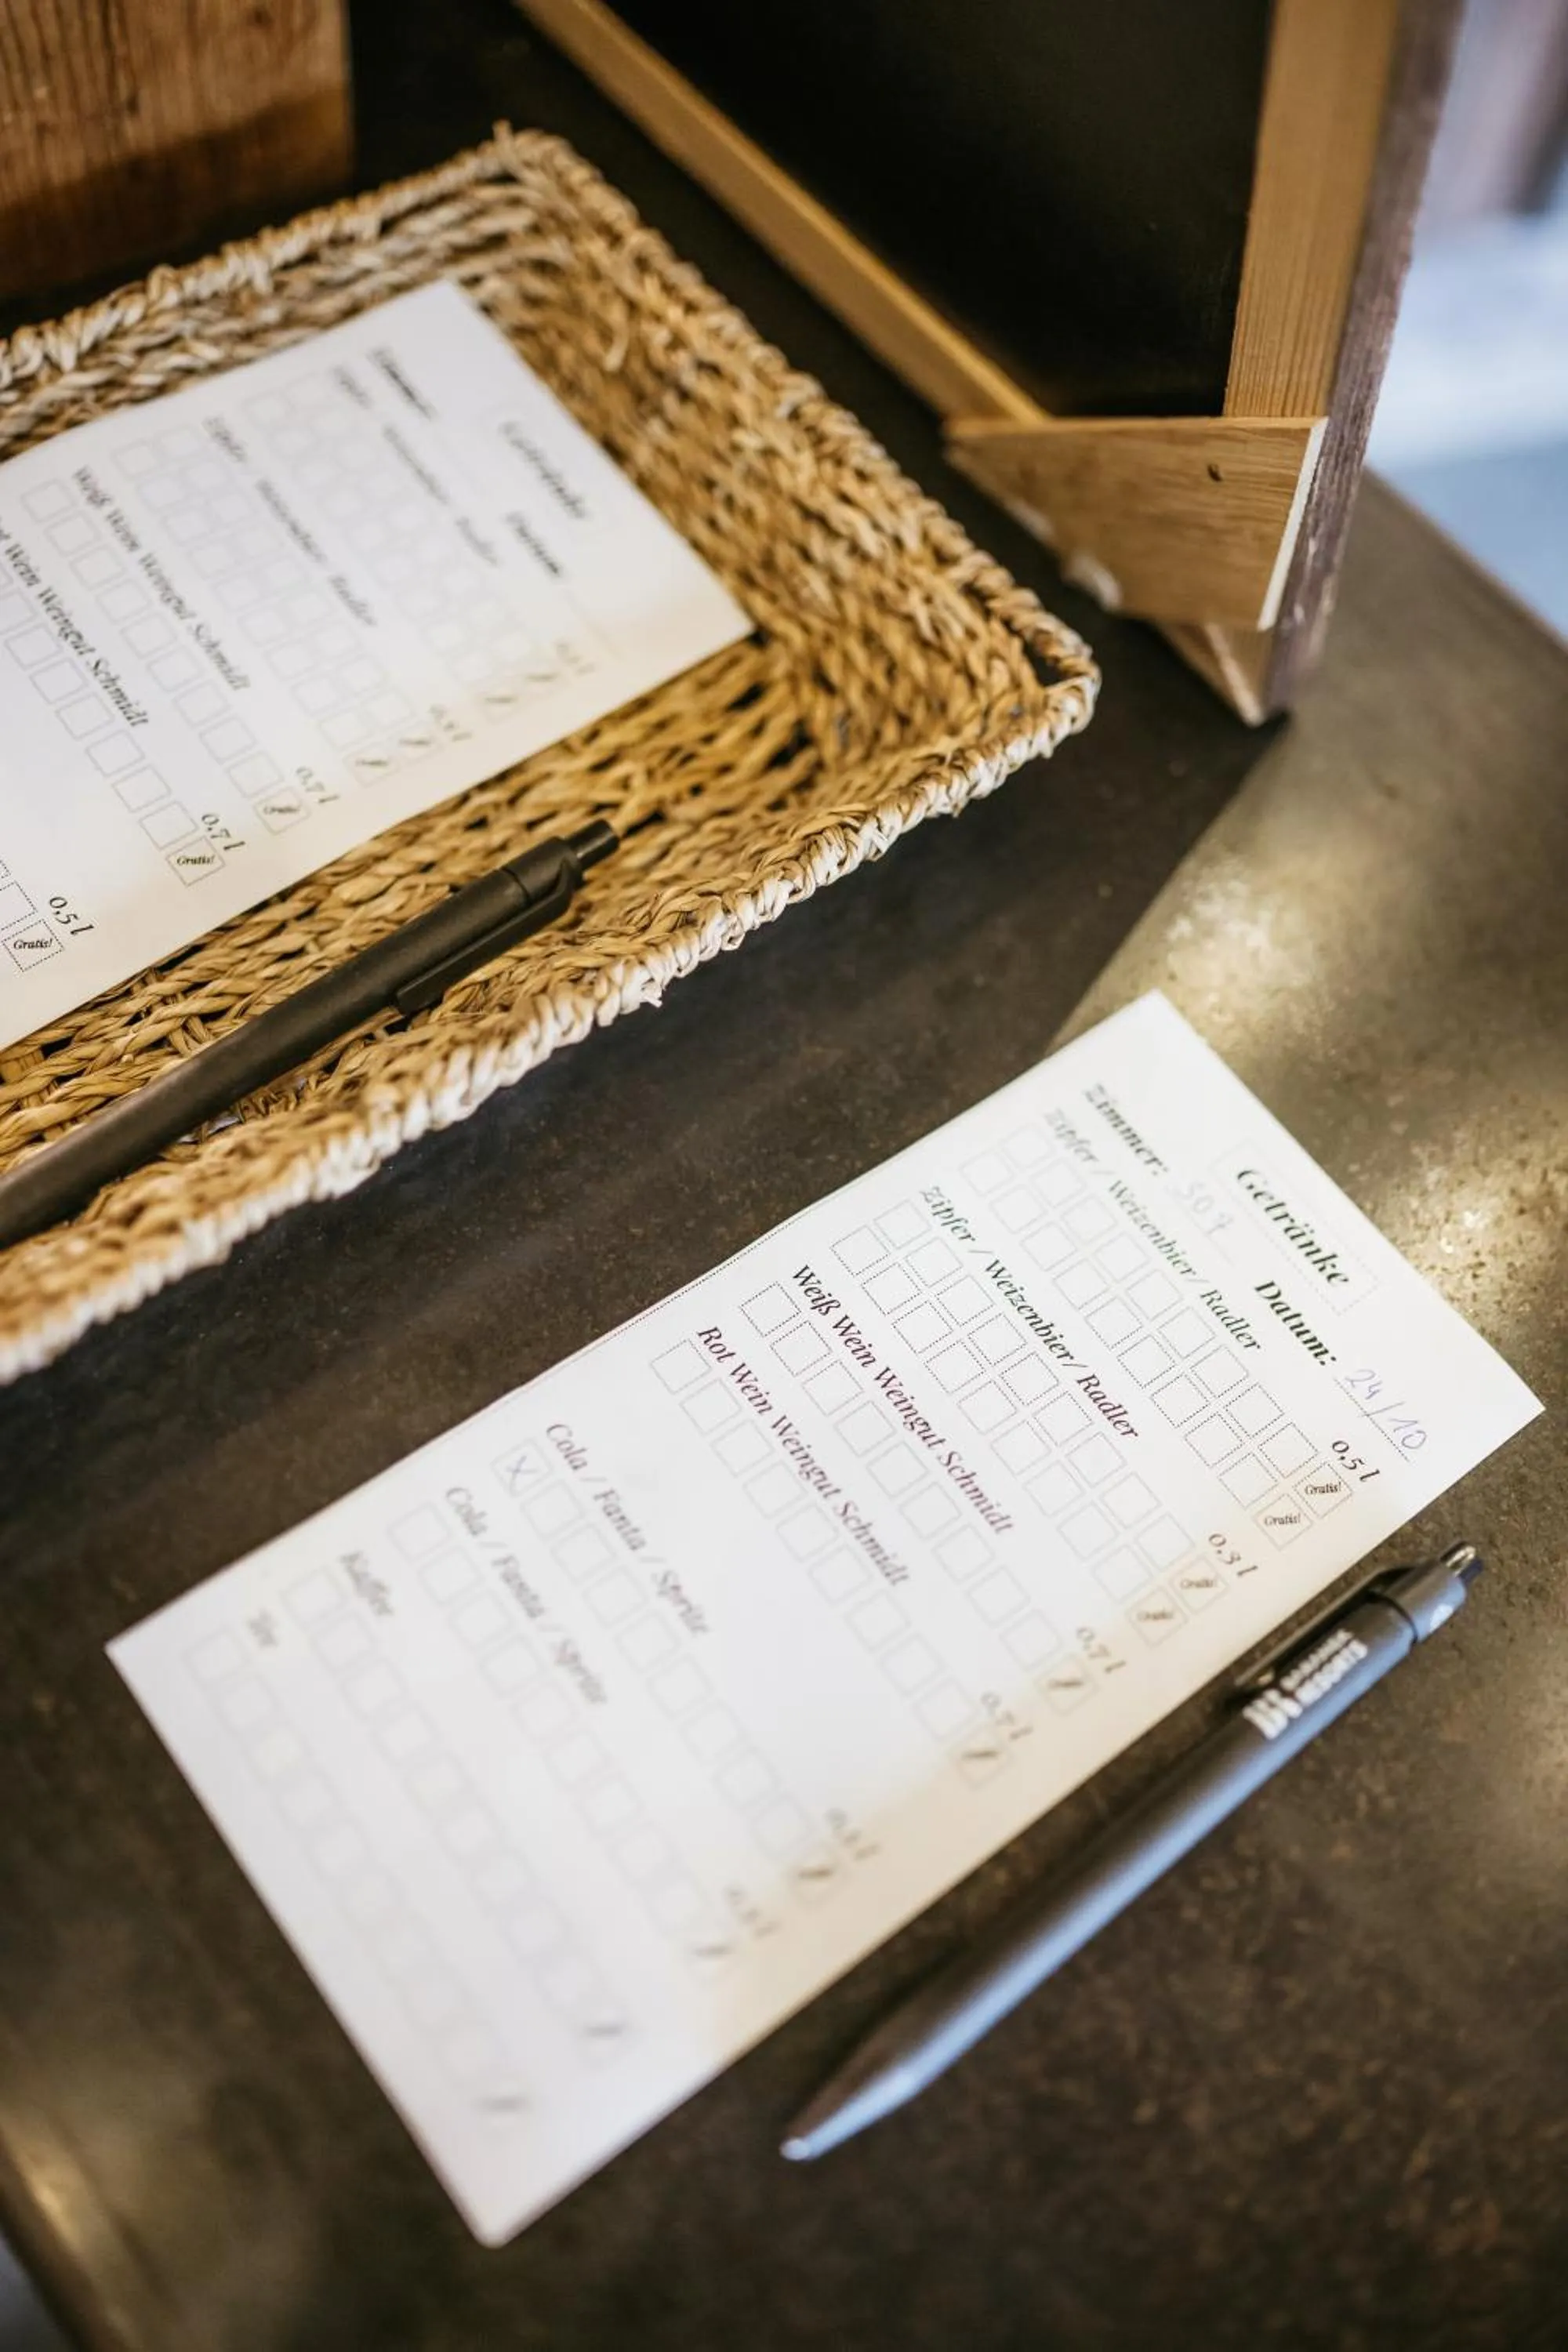 Getränke
Zimmer: 507 Datum: 24/10
Zipfer / Weizenbier / Radler 0,5 l
Gratis!
Gratis!
Zipfer / Weizenbier / Radler 0,3 l
Gratis!
Gratis!
Weiß Wein Weingut Schmidt 0,7 l
Rot Wein Weingut Schmidt 0,7 l
Cola / Fanta / Sprite
X
Cola / Fanta / Sprite
Kaffee
Tee
Getränke
Datum
Zipfer / Weizenbier / Radler
Weiß Wein Weingut Schmidt 0,7 l
Gratis!
Wein Weingut Schmidt 0,7 l
Gratis!
0,5 l
Gratis!